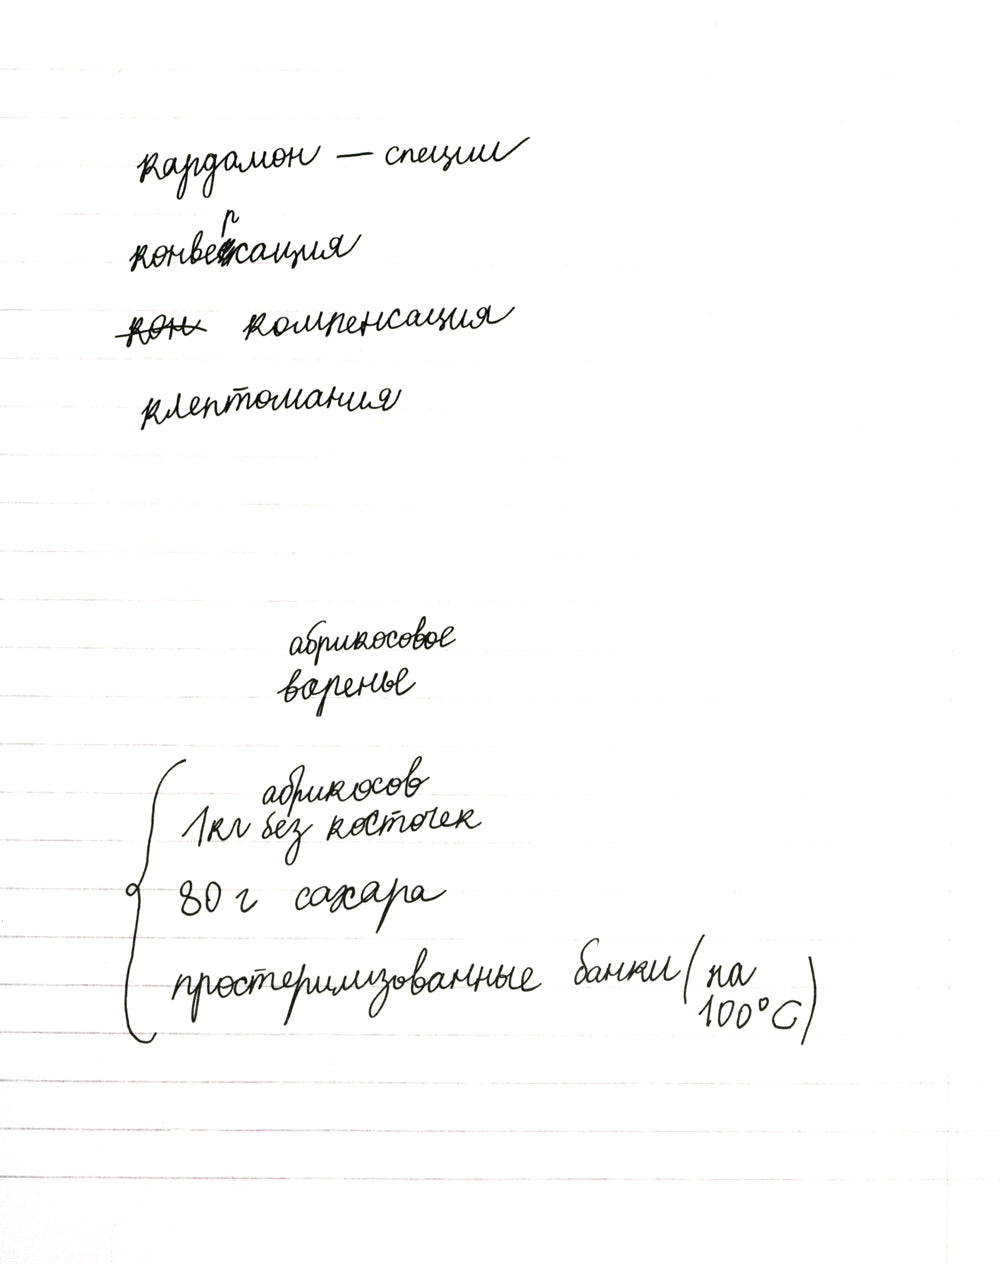 кардамон — специи
конверсация
кон компенсация
клептомания
абрикосовое
варенье
абрикосов
1кг без косточек
80 г сахара
простерилизованные банки (на
100°C)